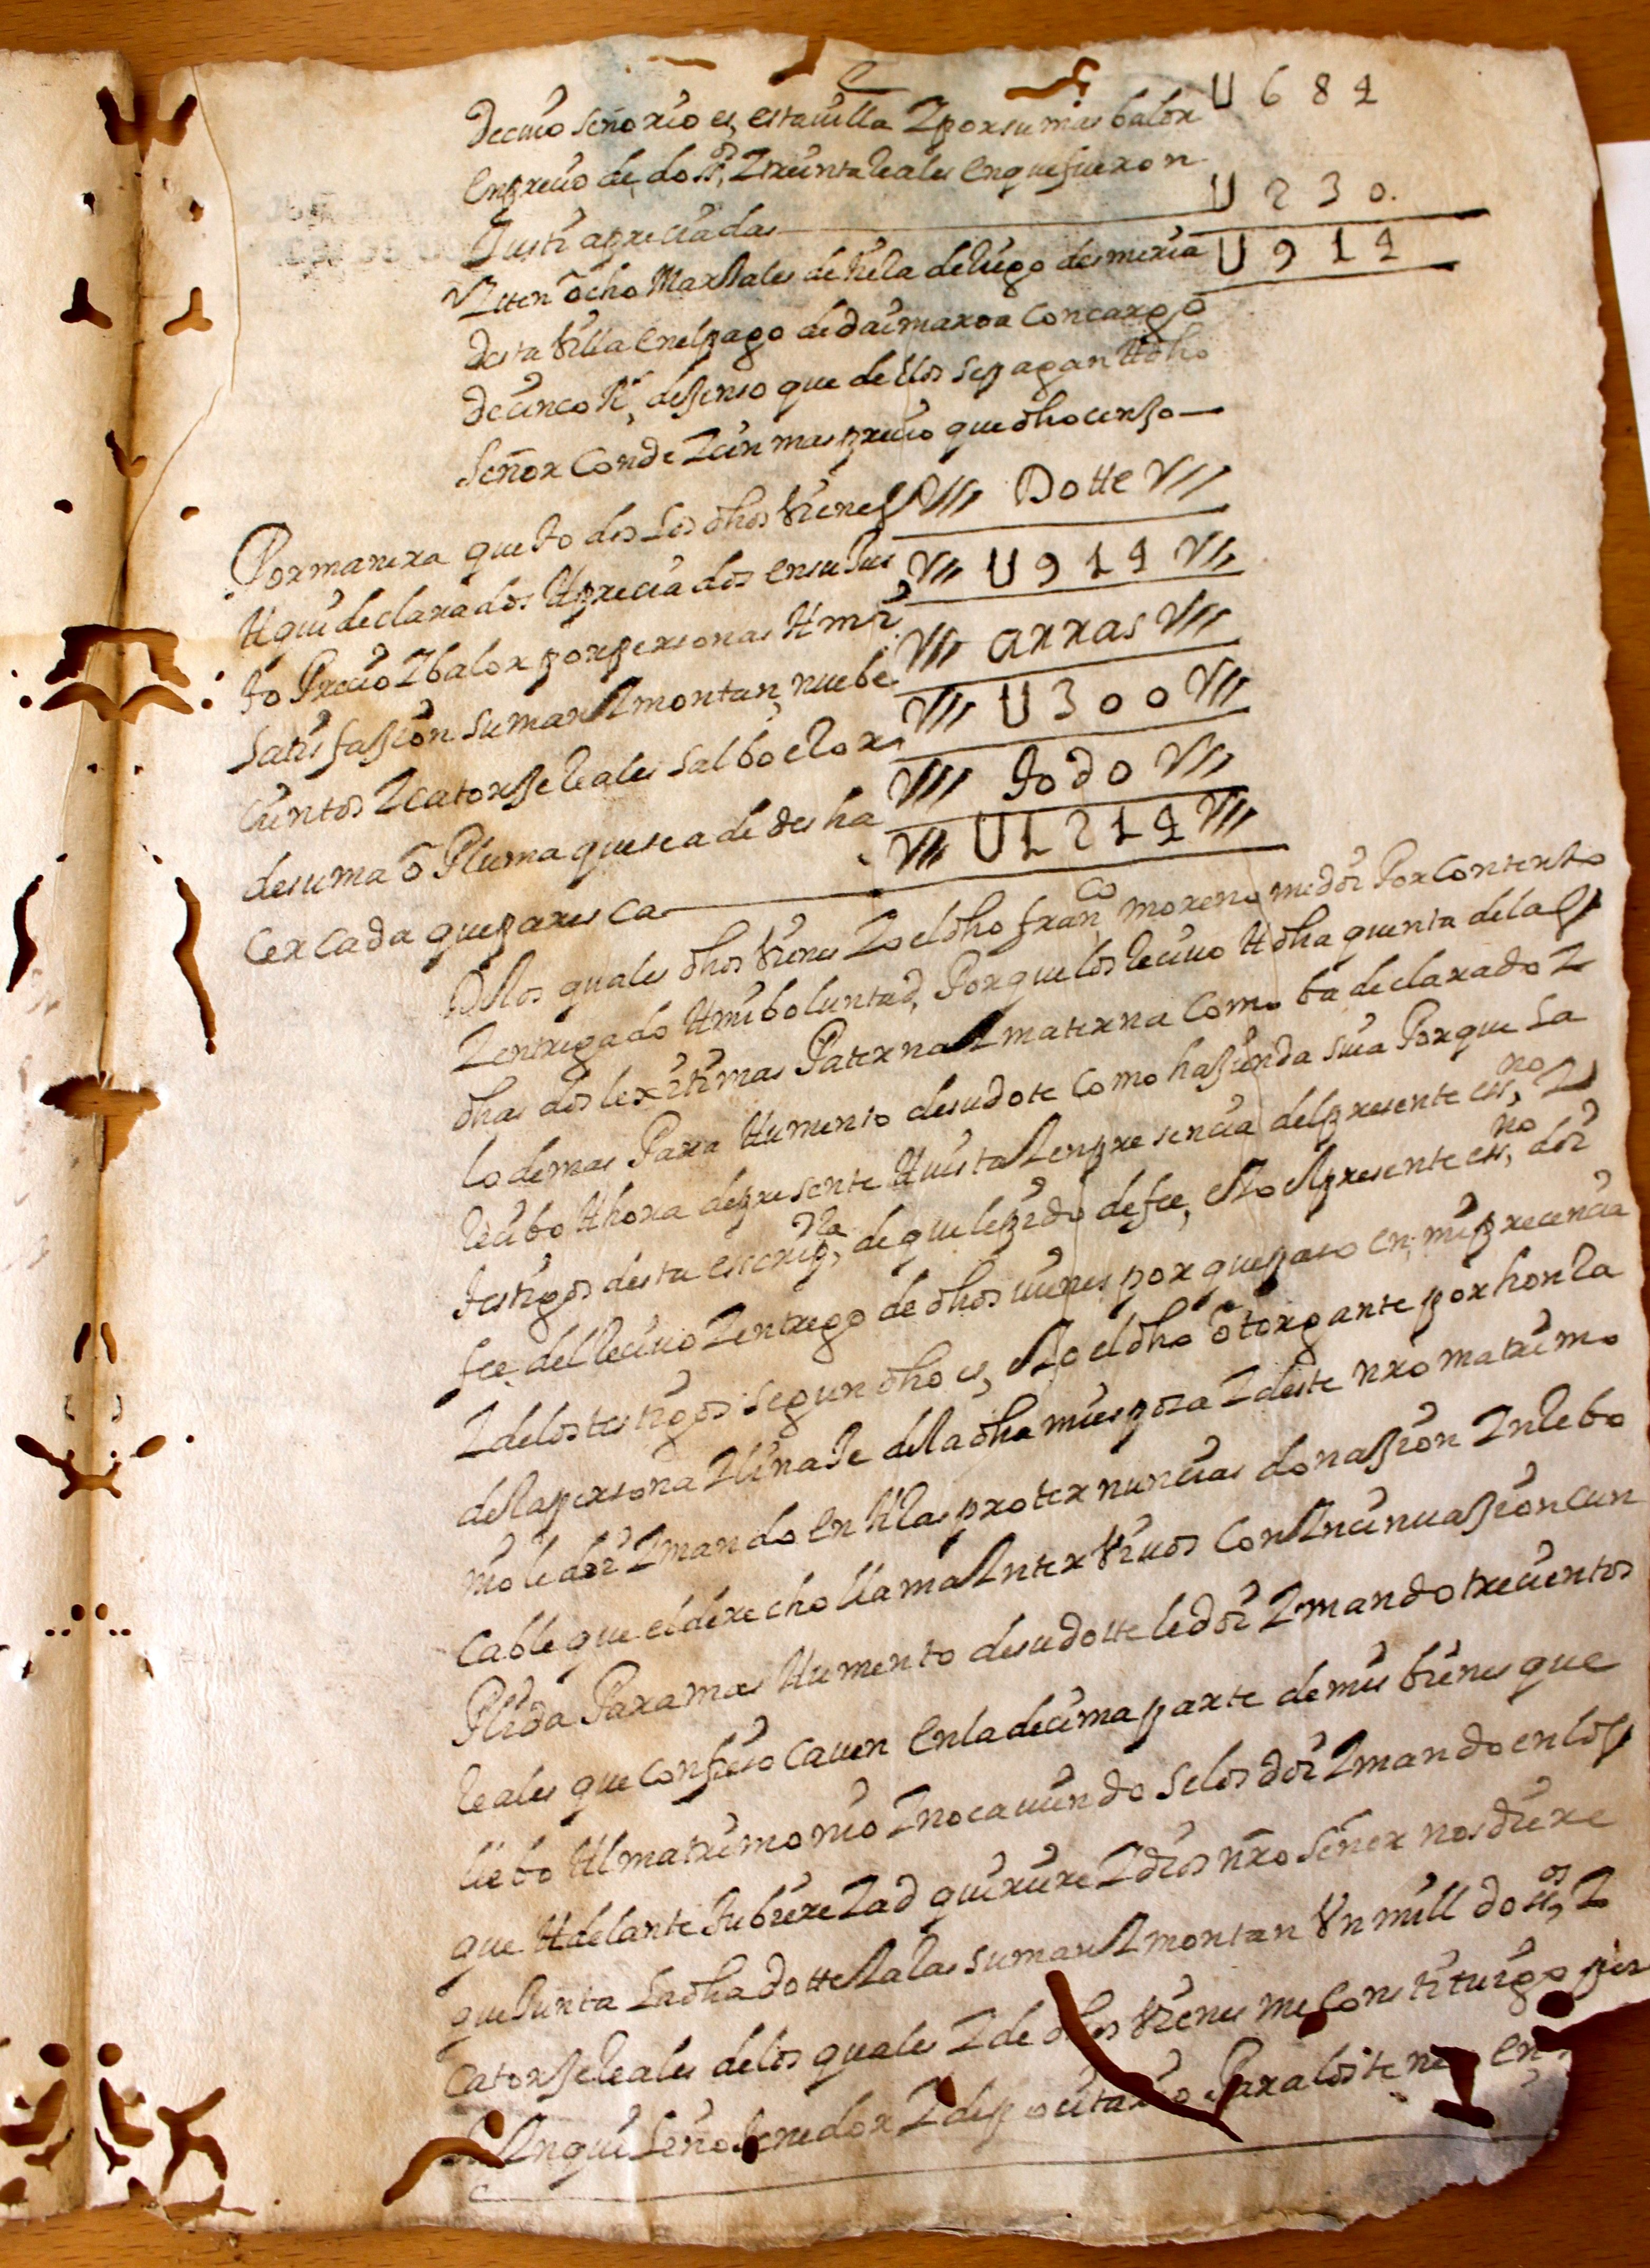 U 684
de cuio señorio es, esta uilla Y por su mas balor
En preuio de, dos.os Y treinta Reales en que fueron
Justi apreciadas U 230.
Yten ocho Marxales de tiera de riego de meria U 914
desta Villa en el pago de daimaroa con cargo
de cinco Rs, de senso que dellos se pagan A dho
Señor Conde Y sin mas preuio que dho censo
Por manera que todos Los dhos Vienes
Aqui declarados Apreciados en su Jus
to Precio Y balor por personas A mi
Satisfasion suman Y montan, nuebe
Cientos Y catorse Reales salbo elor
de suma o Pluma que se a de desha
cer cada que paresca
/// Dotte ///
/// U 914 ///
/// arras ///
/// U 300 ///
/// todo ///
/// U1214 ///
De los quales dhos Vienes Yo el dho franco moreno me doi Por contento
Y entregado A mi boluntad, Por que los reciuo A dha quenta de las
dhas dos lexitimas Paterna Y materna Como ba declarado Y
lo demas Para Aumento de su dote como hasienda suia Porque La
Reciuo Ahora de presente A uista Y en presencia del presente essno, Y
testigos desta escripra, de que le pido de fee, Yo el presente essno, doi
fee, del Reciuo Y entrego de dhos uienes por que paso en, mi precencia
Y de los testigos segun dho es, Yo el dho otorgante por honRa
de la persona Y linaJe de la dha mi esposa Y deste nro matrimo
nio le doi Y mando en ARas proter nuncias donasion Yn Rebo
cable que el derecho llama Ynter Viuos Con Yncinuasion cun
plida Para mas Aumento de su dotte le doi Y mando trecientos
Reales que confieso cauen en la decima parte de mis bienes que
llebo Al matrimonio Y no cauiendo se los doi Y mando en los
que Adelante tubiere Y ad quiriere Y dios nro Señor nos diere
que Junta La dha dotte Y aRas suman Y montan Vn mill dosos, Y
catorse Reales de los quales Y de dhos Vienes me constituigo por
Ynqui Leno tenedor Y depocitario Para los tener en